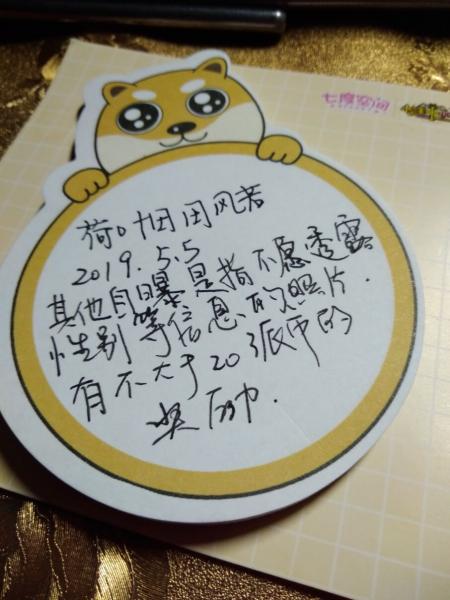 七度空间
荷 田风若
2019.5.5
其他自曝是指不愿透露
性别等信息的照片.
有不大于20派币的
奖励.